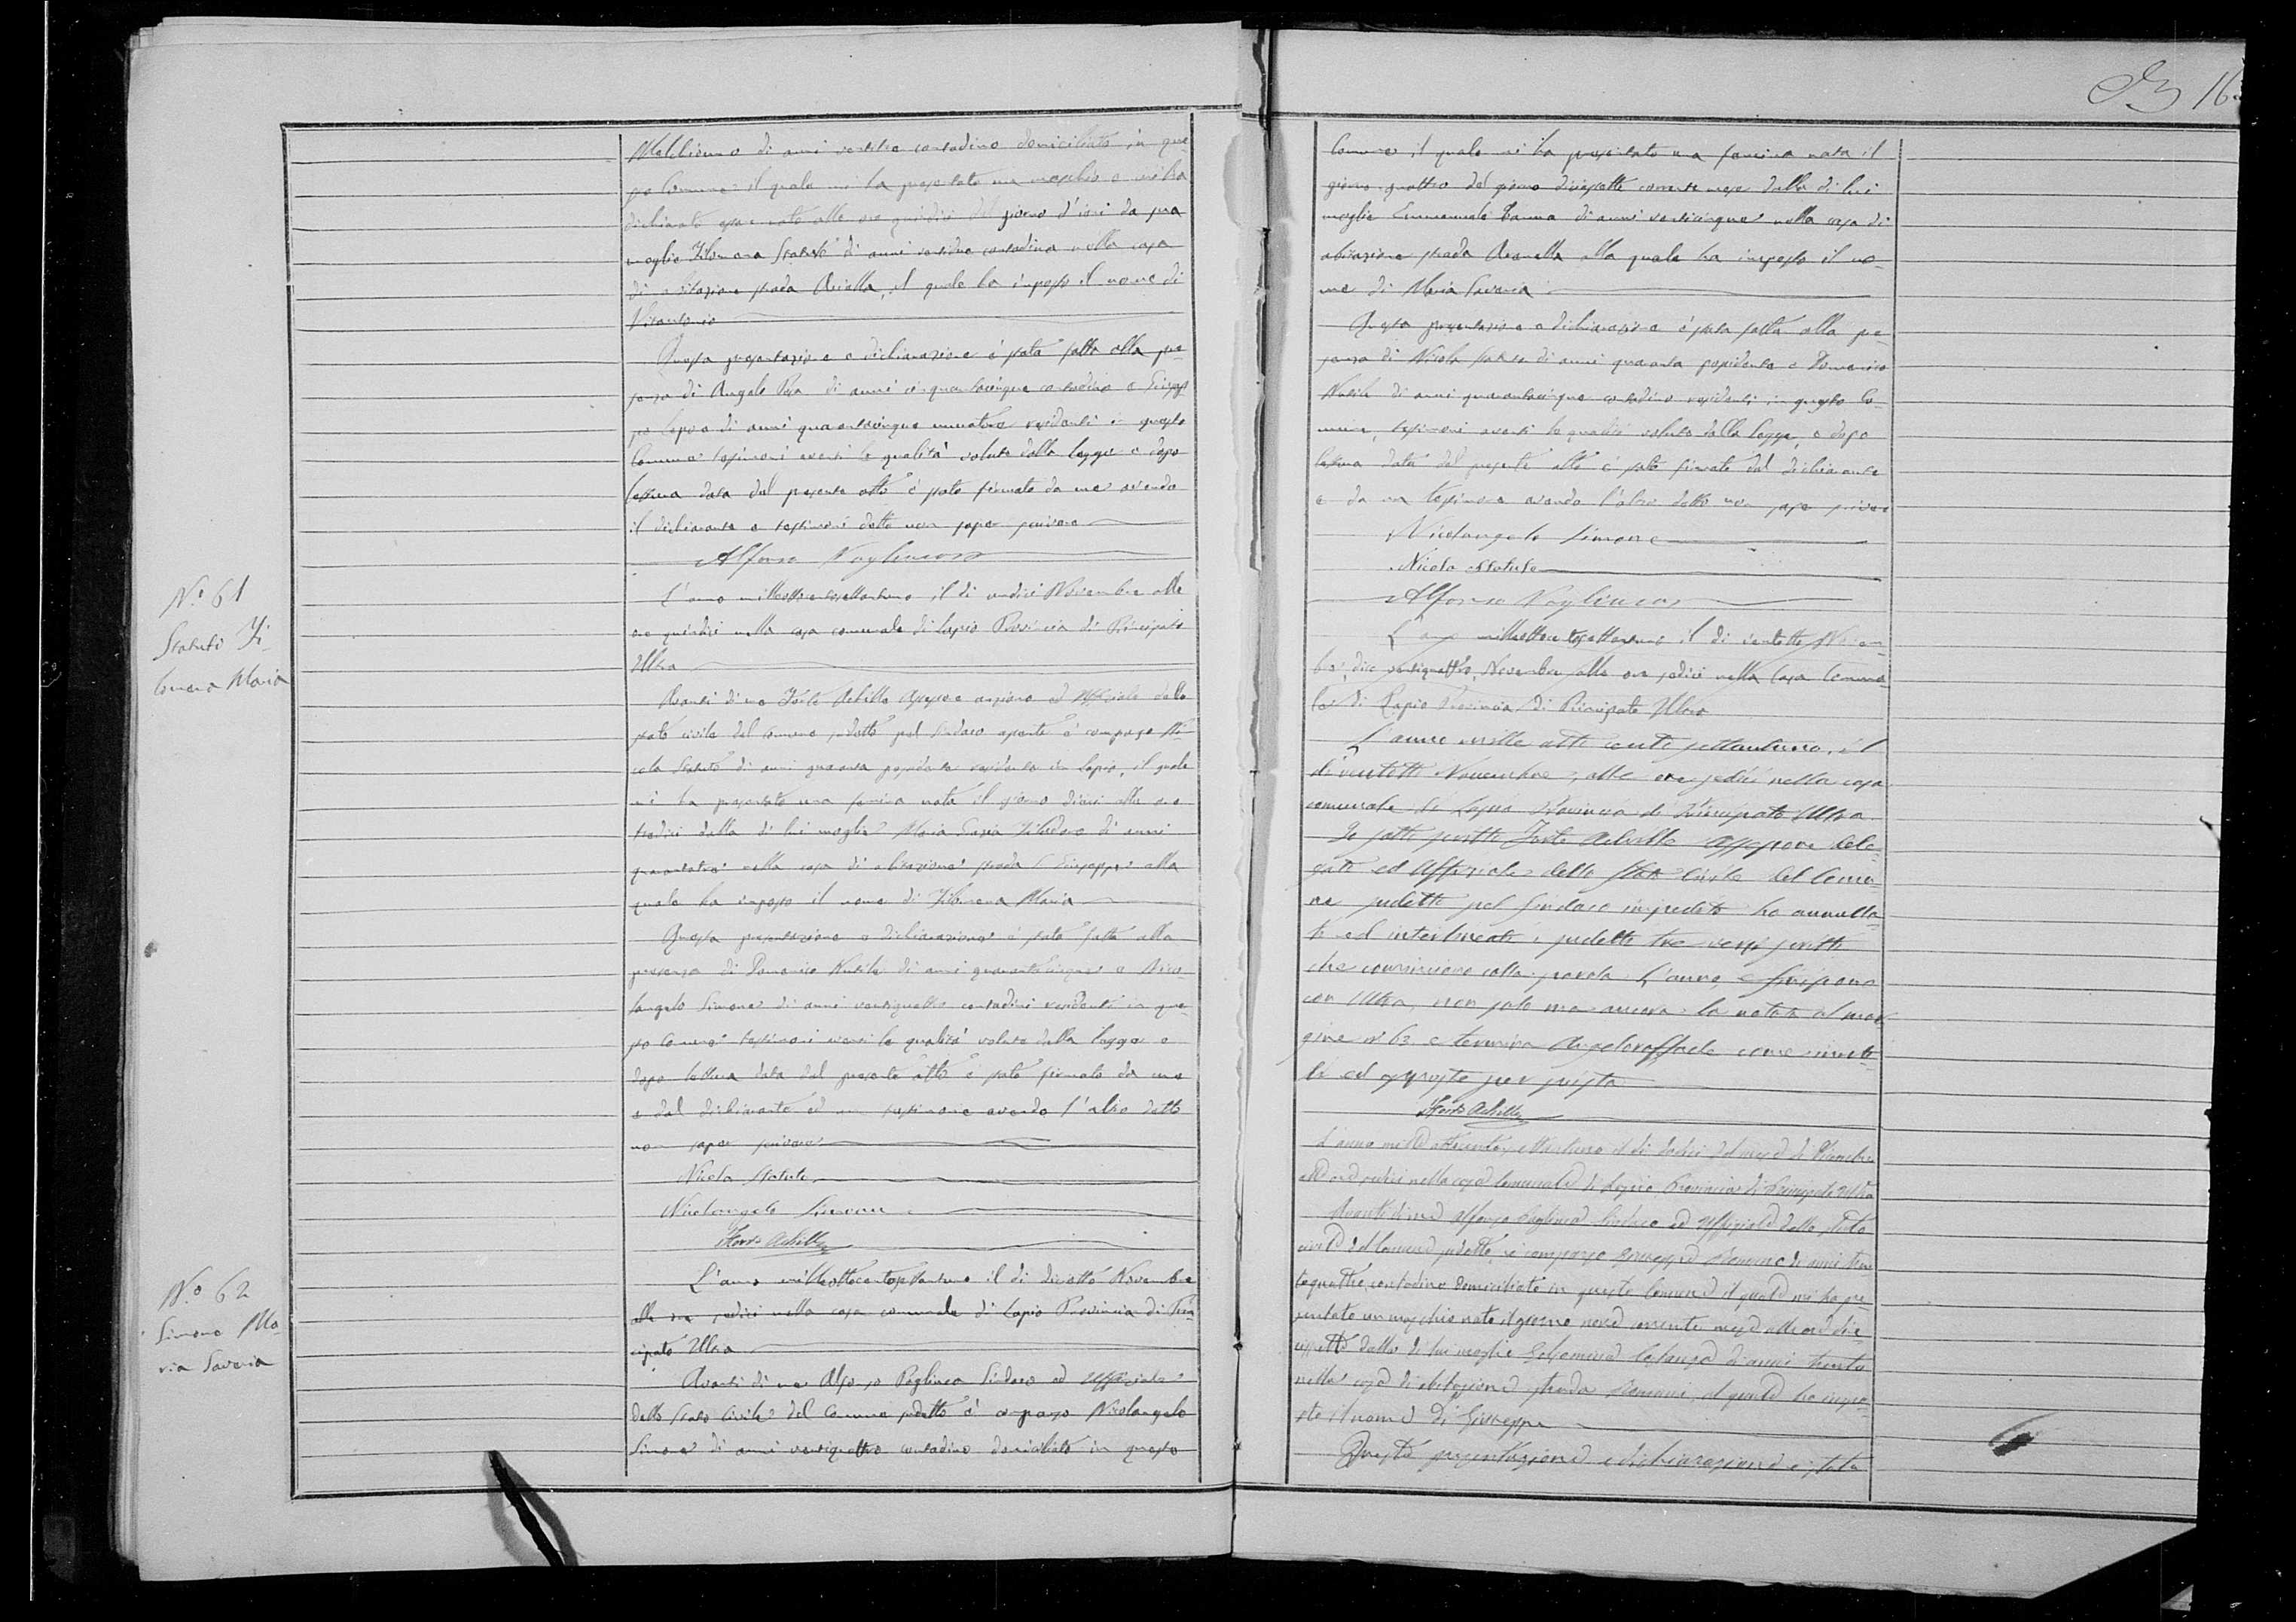 Melchiorro di anni ventitre contadino domiciliato in que
sto Comune il quale mi ha presentato un maschio e mi ha
dichiarato essere nato alle ore quindici del giorno d'ieri da sua
moglie Filomena Statuto di anni ventidue contadina nella casa
di abitazione strada Arianella, al quale ha imposto il nome di
Vitantonio
Questa presentazione e dichiarazione è stata fatta alla pre
senza di Angelo di anni cinquantacinque contadino e Giusep
po di anni quarantacinque muratore residenti in questo
Comune testimoni aventi le qualità volute dalla legge e dopo
lettura data del presente atto è stato firmato da me avendo
il dichiarante e testimoni detto non saper scrivere
Alfonso Vagliuca
N.o 61
Statuto Fi-
lomena Maria
L'anno milleottocentosettantuno il di undici Novembre alle
ore quindici nella casa comunale di Lapio Provincia di Principato
Ultra
Avanti di me Forte Achille Assessore anziano ed Uffiziale dello
stato civile del Comune sudetto pel Sindaco assente è comparso Ni
cola Statuto di anni quaranta possidente residente in Lapio, il quale
mi ha presentato una femina nata il giorno dieci alle ore
tredici dalla di lui moglie Maria Grazia di anni
quarantatre nella casa di abitazione strada S Giuseppe alla
quale ha imposto il nome di Filomena Maria
Questa presentazione e dichiarazione è stata fatta alla
presenza di Domenico di anni quarantacinque e Nico
langelo Simone di anni ventiquattro contadini residenti in que
sto Comune testimoni aventi le qualità volute dalla legge e
dopo lettura data del presente atto è stato firmato da me
e dal dichiarante ed un testimone avendo l'altro detto
non saper scrivere
Nicola Statuto
Nicolangelo Simone
Forte Achille
N.o 62
Simone Ma-
ria Saveria
L'anno milleottocentosettantuno il di diciotto Novembre
alle ore sedici nella casa comunale di Lapio Provincia di Prin
cipato Ultra
Avanti di me Alfonso Vagliuca Sindaco ed Uffiziale
dello Stato Civile del Comune sudetto è comparso Nicolangelo
Simone di anni ventiquattro contadino domiciliato in questo
16
Comune il quale mi ha presentato una femina nata il
giorno quattro del giorno diciassette corrente mese dalla di lui
moglie Emmanuela di anni venticinque nella casa di
abitazione strada Arianella alla quale ha imposto il no-
me di Maria Saveria
Questa presentazione e dichiarazione è stata fatta alla pre
senza di Nicola Statuto di anni quaranta possidente e Domenico
di anni quarantacinque contadino residenti in questo Co-
mune, testimoni aventi le qualità volute dalla legge, e dopo
lettura data del presente atto è stato firmato dal dichiarante
e da un testimone avendo l'altro detto non saper scrivere
Nicolangelo Simone
Nicola Statuto
Alfonso Vagliuca
L'anno milleottocentosettantuno il di ventotto Novem-
bre, dico ventiquattro Novembre alle ore sedici nella Casa Comuna-
le di Lapio Provincia di Principato Ultra
L'anno mille otto cento settantuno, il
dì ventotto Novembre, alle ore sedici nella casa
comunale di Lapio Provincia di Principato Ultra
Io sotto scritto Forte Achille Assessore dele-
gato ed Uffiziale dello Stato Civile del Comu-
ne sudetto pel Sindaco impedito ho annulla-
to ed interlineato i sudetti tre versi scritti
che cominciano colla parola L'anno, e finiscono
con Ultra, non solo ma ancora la notata al mar
gine n° 63 e termina Angeloraffaele come inuti-
le ed apposta per svista
Forte Achille
L'anno mille ottocento settantuno il di dodici del mese di Dicembre
alle ore sedici nella casa Comunale di Lapio Provincia di Principato Ultra
Avanti di me Alfonso Vagliuca Sindaco ed Uffiziale dello Stato
civile del Comune sudetto è comparso Giuseppe Romano di anni tren
taquattro contadino domiciliato in questo Comune il quale mi ha pre
sentato un maschio nato il giorno nove corrente mese alle ore dicia
ssette dalla di lui moglie Gelsomina Costanza di anni trenta
nella casa di abitazione strada Romano al quale ha impo-
sto il nome di Giuseppe
Questa presentazione e dichiarazione è stata